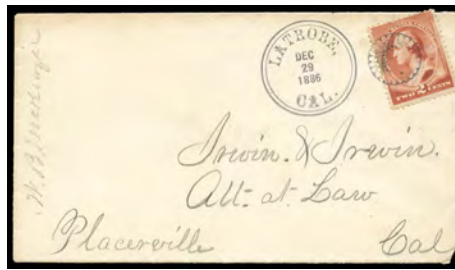 LATROBE,
DEC
29
1886
CAL.
TWO 2 CENTS
W. B.
Irwin. & Irwin.
Att. at Law
Placerville Cal